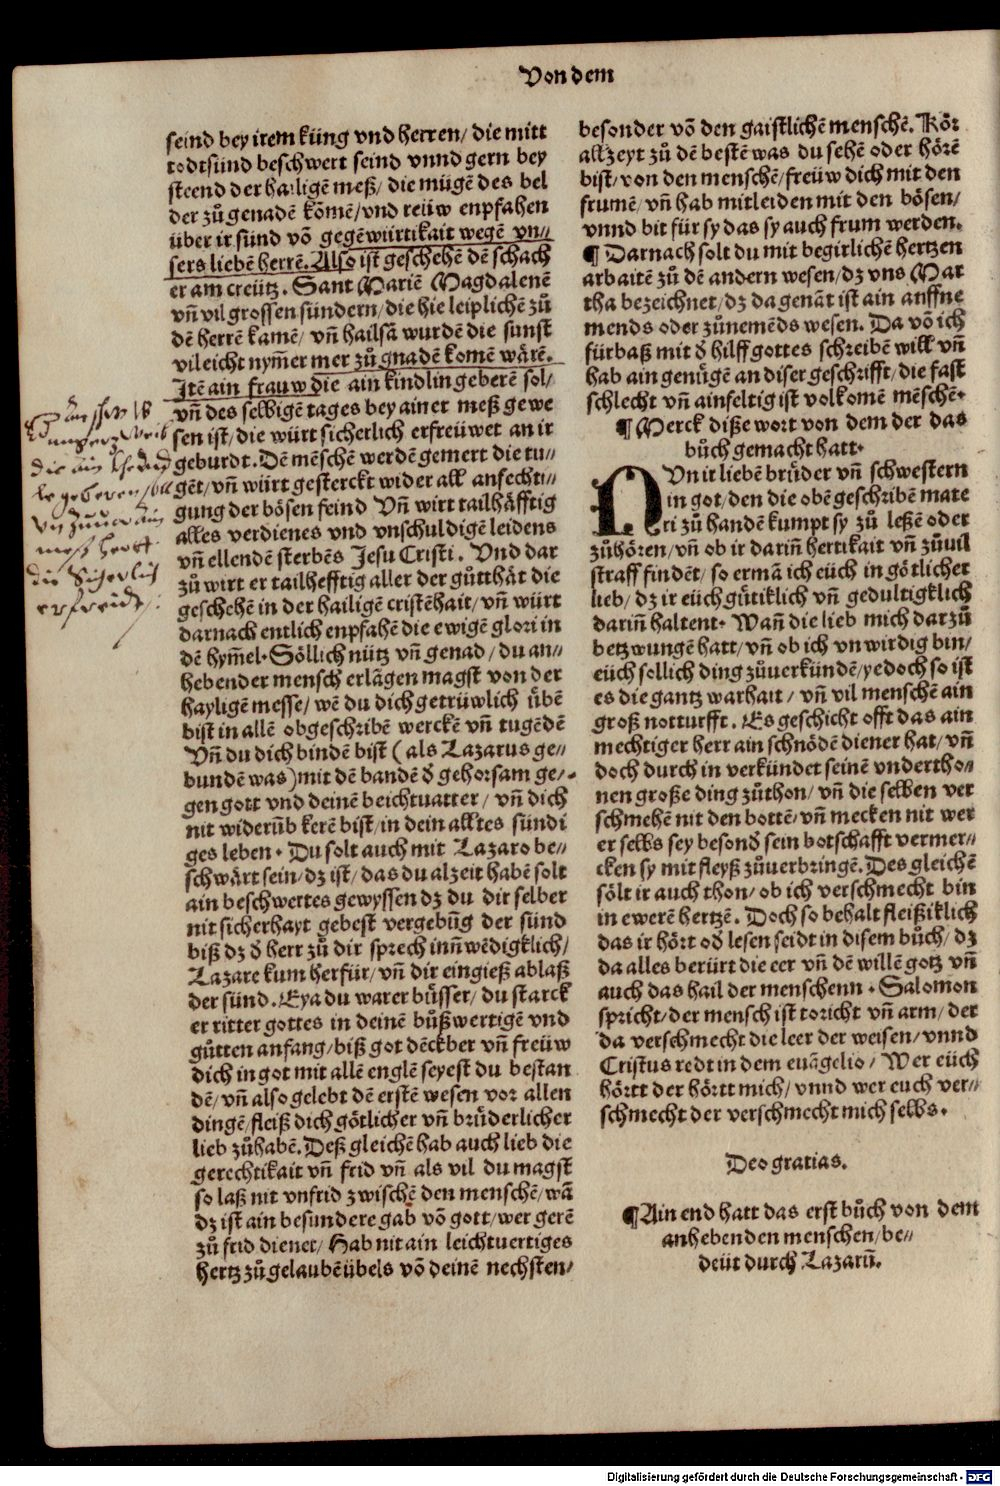 Von dem
seind bey irem küng vnd herren/ die mitt
todtsünd beschwert seind vnnd gern bey
steend der hailigē meß/ die mügē des bel
der zů genadē kōmē/ vnd reüw enpfahen
über ir sünd vō gegēwürtikait wegē vn⸗
sers liebē herrē. Also ist geschehē dē schach
er am creütz. Sant Mariē Magdalenē
vn̄ vil grossen sündern/ die hie leiplichē zů
dē herrē kamē/ vn̄ hailsā wurdē die sunst
vileicht nym̄er mer zů gnadē komē wärē.
Itē ain frauw die ain kindlin geberē sol/
vn̄ des selbigē tages bey ainer meß gewe
sen ist/ die würt sicherlich erfreüwet an ir
geburdt. Dē mēschē werdē gemert die tu⸗
gēt/ vn̄ würt gesterckt wider all anfechti⸗
gung der bösen feind Vn̄ wirt tailhäfftig
alles verdienes vnd vnschuldigē leidens
vn̄ ellendē sterbēs Jesu Cristi. Vnd dar
zů wirt er tailhefftig aller der gůtthāt die
geschehē in der hailigē cristēhait/ vn̄ würt
darnach entlich enpfahē die ewigē glori in
dē hym̄el. Söllich nütz vn̄ genad/ du an⸗
hebender mensch erlāgen magst von der
hayligē messe/ wē du dich getrüwlich übē
bist in allē obgeschribē werckē vn̄ tugēdē
Vn̄ du dich bindē bist (als Lazarus ge⸗
bundē was) mit dē bandē đ gehorsam ge⸗
gen gott vnd deinē beichtuatter/ vn̄ dich
nit widerūb kerē bist/ in dein alltes sündi
ges leben. Du solt auch mit Lazaro be⸗
schwärt sein/ dz ist/ das du alzeit habē solt
ain beschwertes gewyssen dz du dir selber
nit sicherhayt gebest vergebūg der sünd
biß dz đ herr zů dir sprech inn̄wēdigklich/
Lazare kum herfür/ vn̄ dir eingieß ablaß
der sünd. Eya du warer büsser/ du starck
er ritter gottes in deinē bůßwertigē vnd
gůtten anfang/ biß got dēckber vn̄ freüw
dich in got mit allē englē seyest du bestan
dē/ vn̄ also gelebt dē erstē wesen vor allen
dingē/ fleiß dich götlicher vn̄ brüderlicher
lieb zůhabē. Deß gleichē hab auch lieb die
gerechtikait vn̄ frid vn̄ als vil du magst
so laß nit vnfrid zwischē den menschē/ wā
dz ist ain besundere gab vō gott/ wer gerē
zů frid dienet/ Hab nit ain leichtuertiges
hertz zů gelaubē übels vō deinē nechsten/
besonder vō den gaistlichē menschē. Kör
allzeyt zů dē bestē was du sehē oder hörē
bist/ von den menschē/ freüw dich mit den
frumē/ vn̄ hab mitleiden mit den bösen/
vnnd bit für sy das sy auch frum werden.
¶ Darnach solt du mit begirlichē hertzen
arbaitē zů dē andern wesen/ dz vns Mar
tha bezeichnet/ dz da genāt ist ain anffne
mends oder zůnemēds wesen. Da vō ich
fürbaß mit đ hilff gottes schreibē will vn̄
hab ain genügē an diser geschrifft/ die fast
schlecht vn̄ ainfeltig ist volkomē mēschē.
¶ Merck diße wort von dem der das
bůch gemacht hatt.
NVn ir liebē brüder vn̄ schwestern
in got/ den die obē geschribē mate
ri zů handē kumpt sy zů leßē oder
zůhören/ vn̄ ob ir darin̄ hertikait vn̄ zůuil
straff findēt/ so ermā ich eüch in götlicher
lieb/ dz ir eüch gütiklich vn̄ gedultigklich
darin̄ haltent. Wan̄ die lieb mich dar zů
betzwungē hatt/ vn̄ ob ich vnwirdig bin/
eüch sollich ding zůuerkündē/ yedoch so ist
es die gantz warhait/ vn̄ vil menschē ain
groß notturfft. Es geschicht offt das ain
mechtiger herr ain schnödē diener hat/ vn̄
doch durch in verkündet seinē vndertho⸗
nen große ding zůthon/ vn̄ die selben ver
schmehē nit den bottē/ vn̄ mecken nit wer
er selbs sey besonđ sein botschafft vermer⸗
cken sy mit fleyß zůuerbringē. Des gleichē
sölt ir auch thon/ ob ich verschmecht bin
in ewerē hertzē. Doch so behalt fleißiklich
das ir hört ođ lesen seidt in disem bůch/ dz
da alles berürt die eer vn̄ dē willē gotz vn̄
auch das hail der menschenn. Salomon
spricht/ der mensch ist toricht vn̄ arm/ der
da verschmecht die leer der weisen/ vnnd
Cristus redt in dem euāgelio/ Wer eüch
hörtt der hörtt mich/ vnnd wer euch ver⸗
schmecht der verschmecht mich selbs.
Deo gratias.
¶ Ain end hatt das erst bůch von dem
anhebenden menschen/ be⸗
deüt durch Lazarū.
die ain kind
geberen soll
meß hertt
die Sicherlich
erfreidt
Digitalisierung gefördert durch die Deutsche Forschungsgemeinschaft - DFG